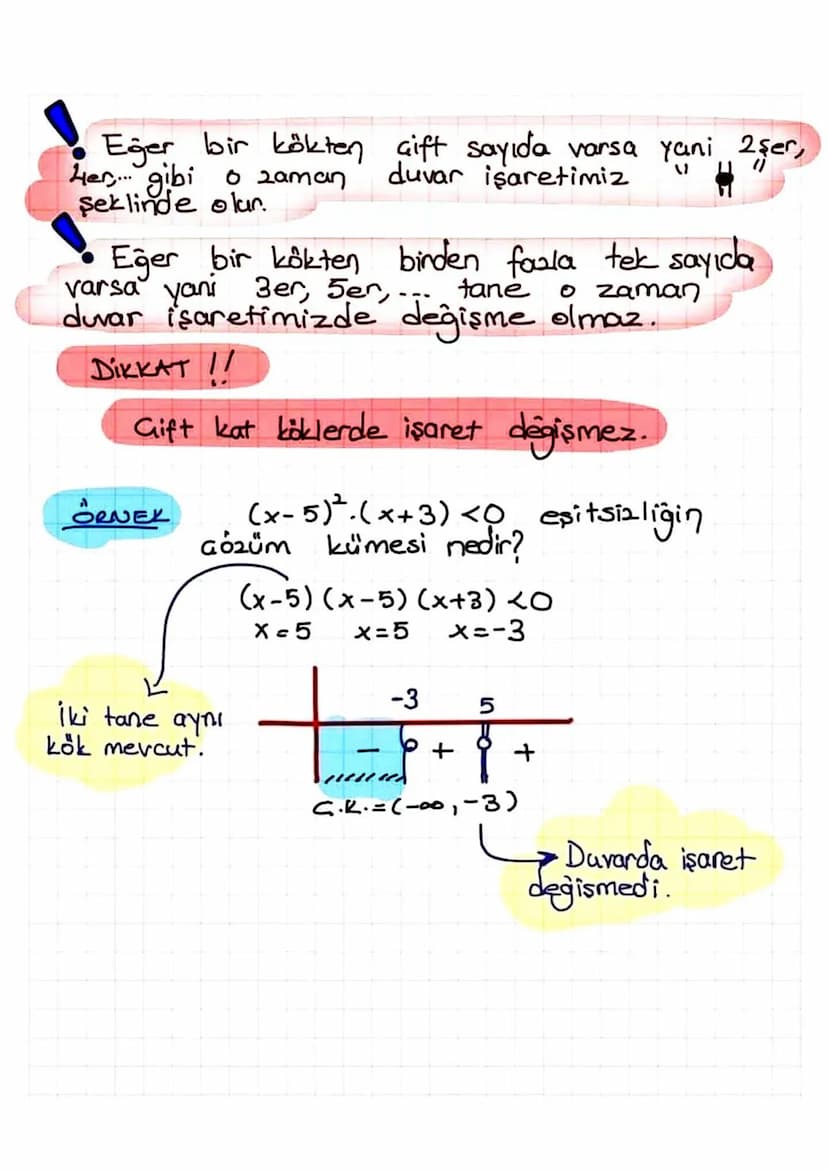 ! Eğer bir kökten çift sayıda varsa yani 2şer,
4er,... gibi o zaman duvar işaretimiz " "
şeklinde olur.
! Eğer bir kökten birden fazla tek sayıda
varsa yani 3er, 5er, ... tane o zaman
duvar işaretimizde değişme olmaz.
DİKKAT !!
Çift kat köklerde işaret değişmez.
ÖRNEK (x-5)².(x+3)<0 eşitsizliğin
çözüm kümesi nedir?
(x-5)(x-5)(x+3)<0
x=5 x=5 x=-3
İki tane aynı
kök mevcut.
-3 5
- + +
Ç.K.=(-∞,-3)
Duvarda işaret
değişmedi.